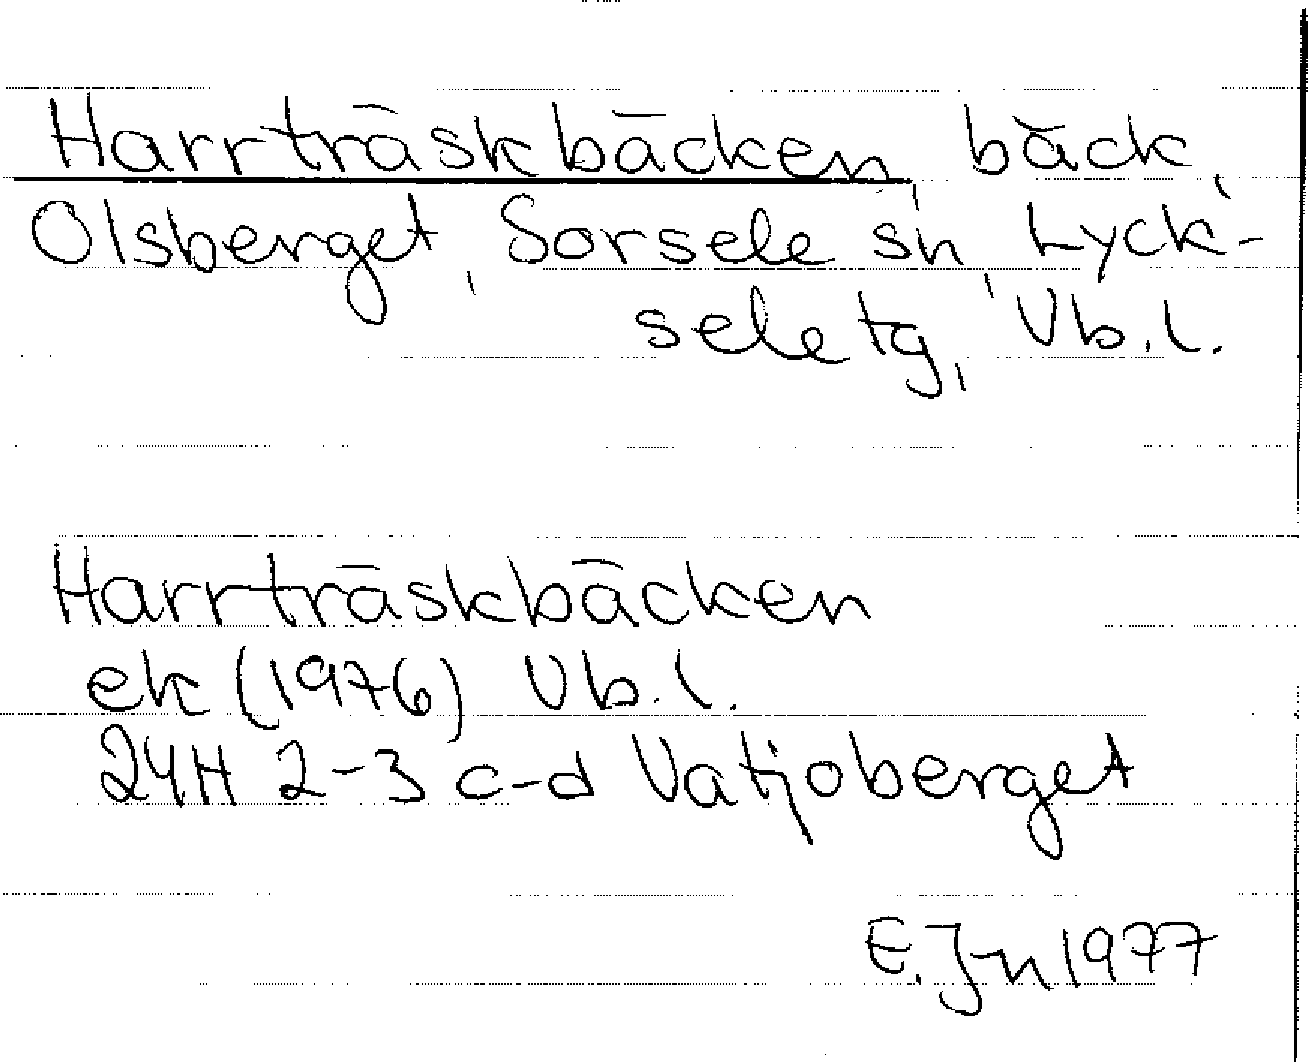 Harrträskbäcken, bäck,
Olsberget, Sorsele sn, Lyck-
sele tg, Vb.l.
Harrträskbäcken
ek (1976) Vb.l.
24H 2-3 c-d Vatjoberget
E. Jn 1977